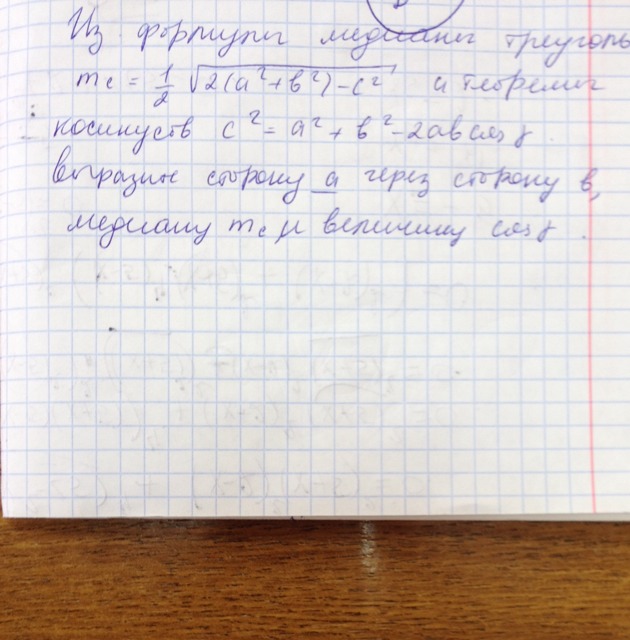 Из формулы медианы треуголь
m_c = 1/2 √2(a²+b²)-c² и теоремы
косинусов c² = a² + b² - 2ab cos γ.
выразите сторону a через сторону b,
медиану m_c и величину cos γ.